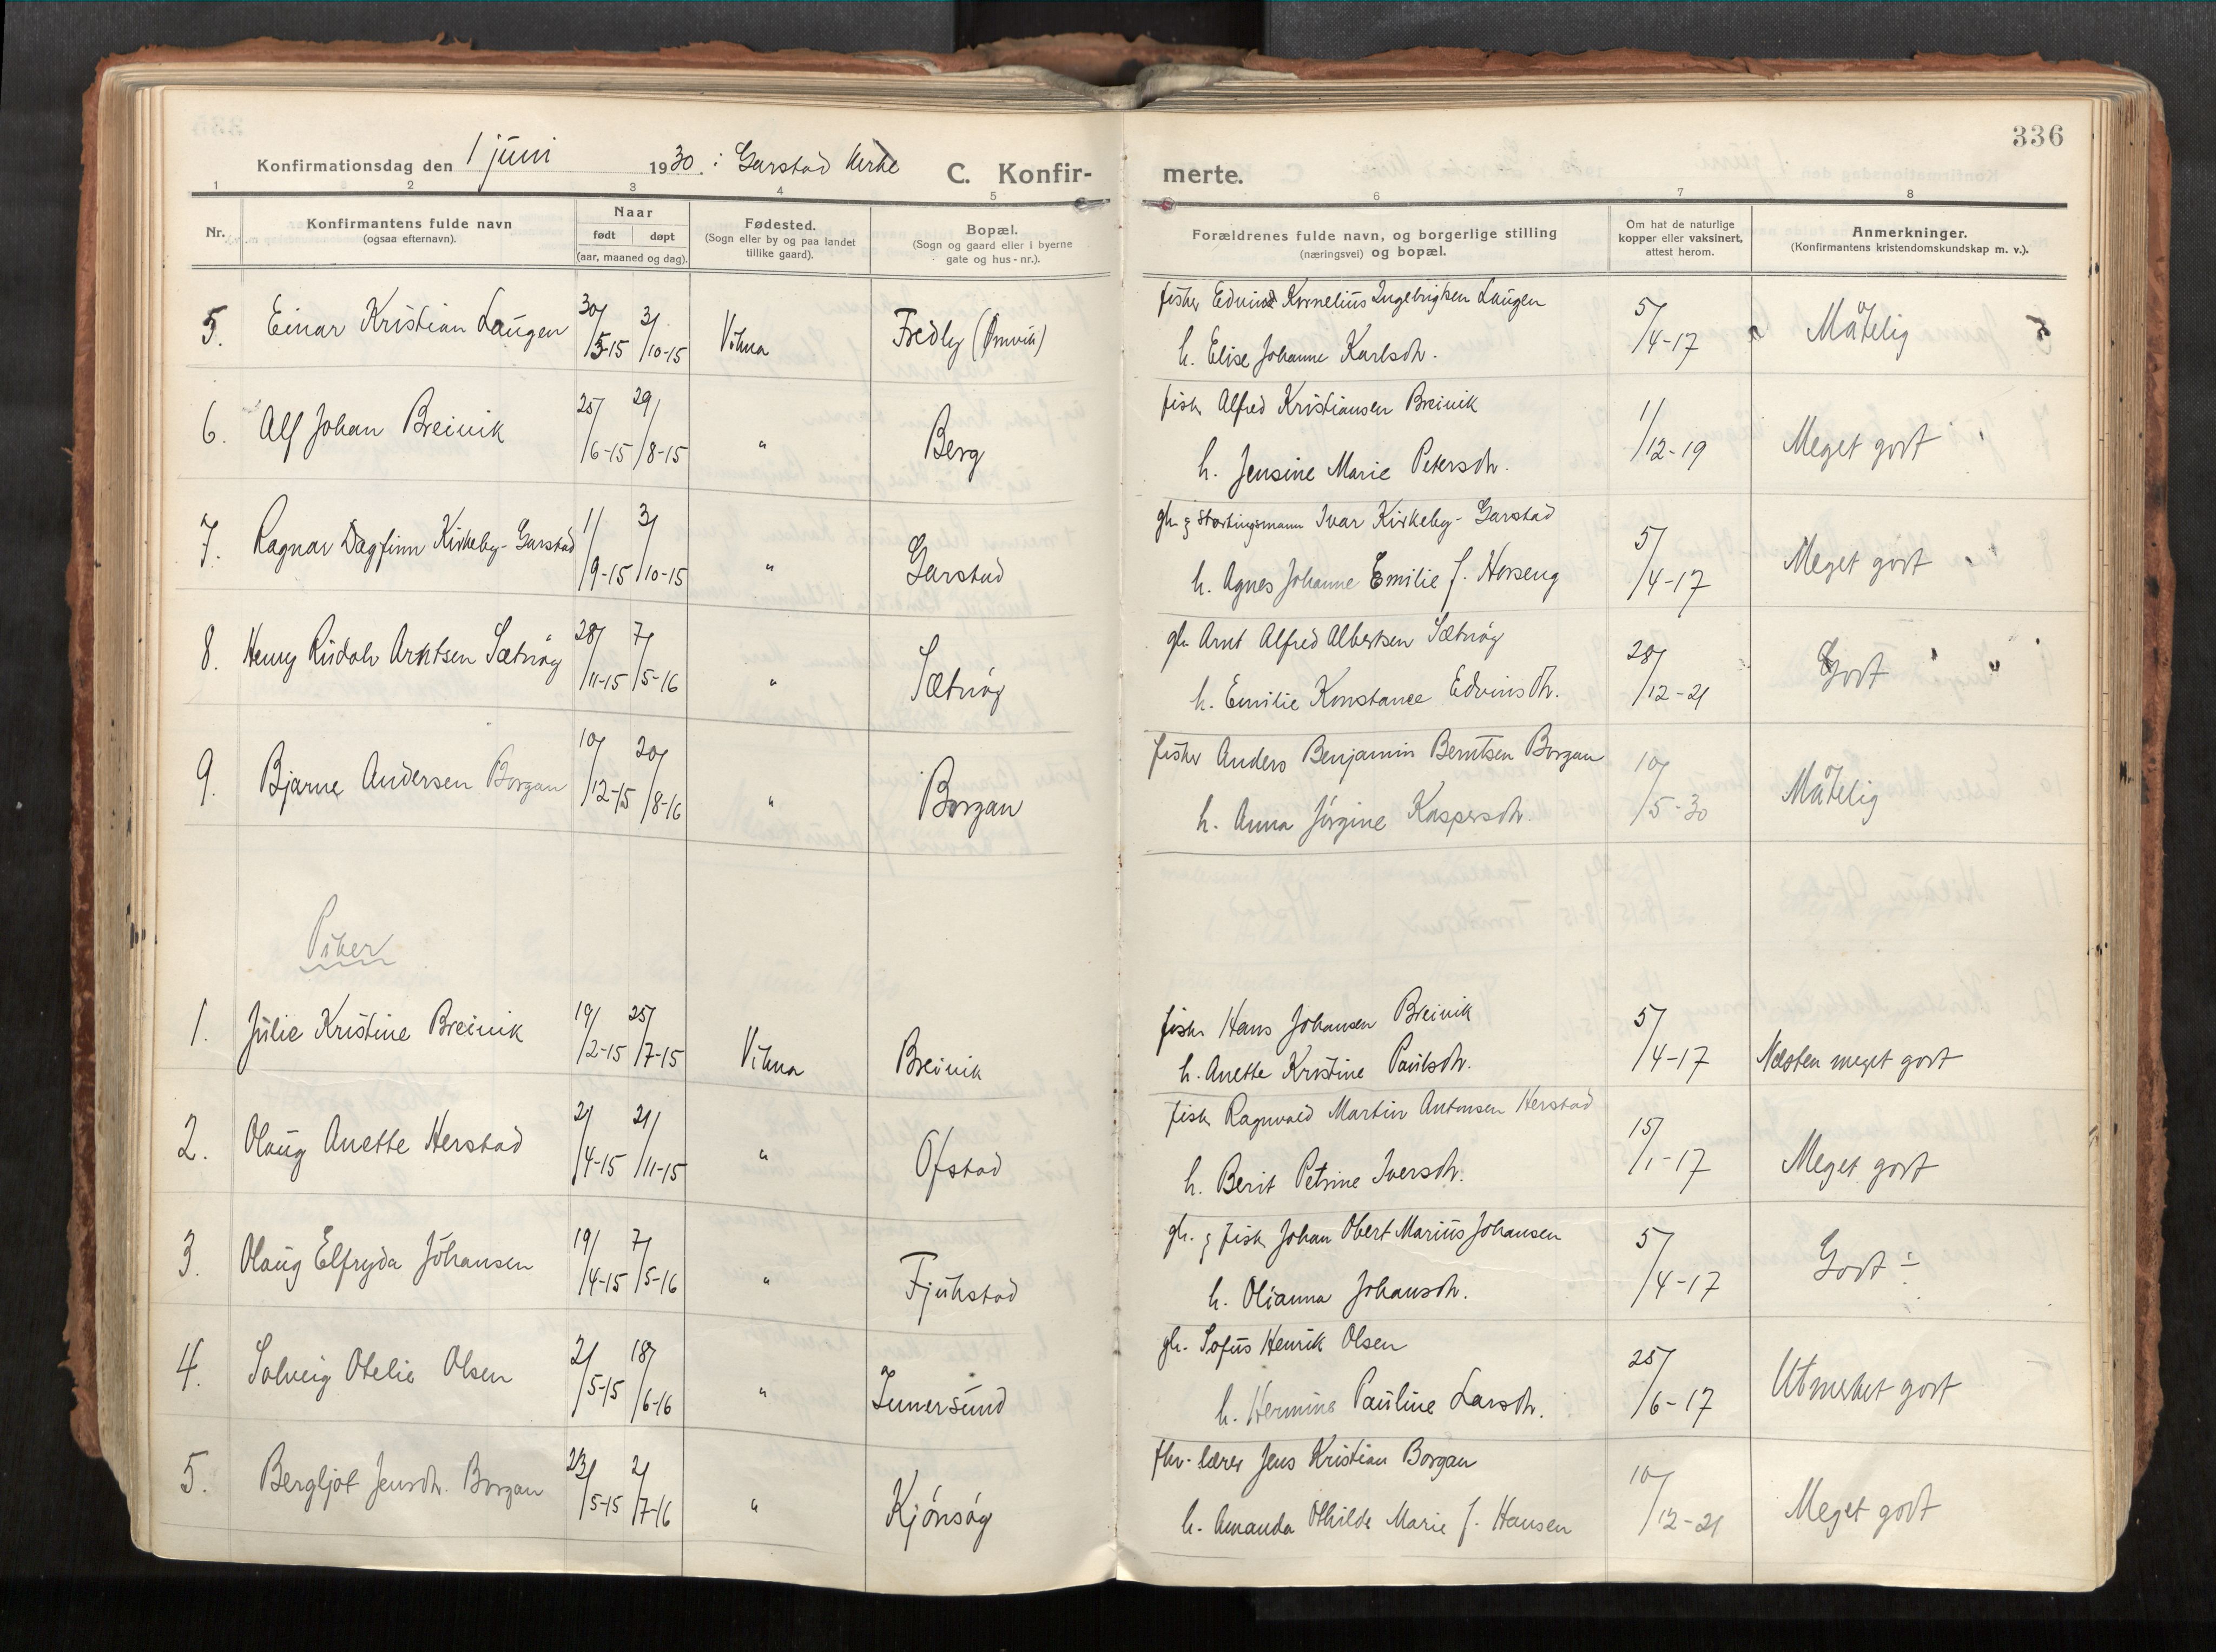 336
Konfirmationsdag den 1 juni 1930. i Garstad kirke C. Konfir- merte.
1 2 3 4 5 6 7 8
Nr. Konfirmantens fulde navn (ogsaa efternavn). Naar født døpt (aar, maaned og dag). Fødested. (Sogn eller by og paa landet tillike gaard). Bopæl. (Sogn og gaard eller i byerne gate og hus-nr.). Forældrenes fulde navn, og borgerlige stilling (næringsvei) og bopæl. Om hat de naturlige kopper eller vaksinert, attest herom. Anmerkninger. (Konfirmantens kristendomskundskap m. v.).
5. Einar Kristian Laugen 30/5-15 3/10-15 Vikna Fredly (Ørnvik) fisker Edvind Kornelius Ingebrigtsen Laugen 5/4-17 Måtelig
h. Elise Johanne Karlsdtr.
6. Alf Johan Breivik 25/6-15 29/8-15 " Berg fisk. Alfred Kristiansen Breivik 1/12-19 Meget godt
h. Jensine Marie Petersdtr.
7. Ragnar Dagfinn Kirkeby-Garstad 1/9-15 3/10-15 " Garstad gbr. & stortingsmann Ivar Kirkeby-Garstad 5/4-17 Meget godt
h. Agnes Johanne Emilie f. Horseng
8. Henry Rudolv Arntsen Sætvåg 28/11-15 7/5-16 " Sætvåg gbr. Arnt Alfred Albertsen Sætvåg 28/12-21 Godt
h. Emilie Konstance Edvinsdtr.
9. Bjarne Andersen Borgan 10/12-15 20/8-16 " Borgan fisker Anders Benjamin Berntsen Borgan 10/5-30 Måtelig
h. Anna Jørgine Kaspersdtr.
Piker
1. Julie Kristine Breivik 19/2-15 25/7-15 Vikna Breivik fisker Hans Johansen Breivik 5/4-17 Næsten meget godt
h. Anette Kristine Paulsdtr.
2. Olaug Anette Herstad 2/4-15 21/11-15 " Ofstad fisk. Ragnvald Martin Antonsen Herstad 15/1-17 Meget godt
h. Berit Petrine Iversdtr.
3. Olaug Elfryda Johansen 19/4-15 7/5-16 " Fjukstad gbr. & fisk. Johan Obert Marius Johansen 5/4-17 Godt ÷
h. Olianna Johansdtr.
4. Solveig Otelie Olsen 2/5-15 18/6-16 " Innersund gbr. Sofus Henrik Olsen 25/6-17 Utmerket godt
h. Hermine Pauline Larsdtr.
5. Bergljot Jensdtr. Borgan 23/5-15 2/7-16 " Kjønsøy fhv. lærer Jens Kristian Borgan 10/12-21 Meget godt
h. Amanda Othilde Marie f. Hansen